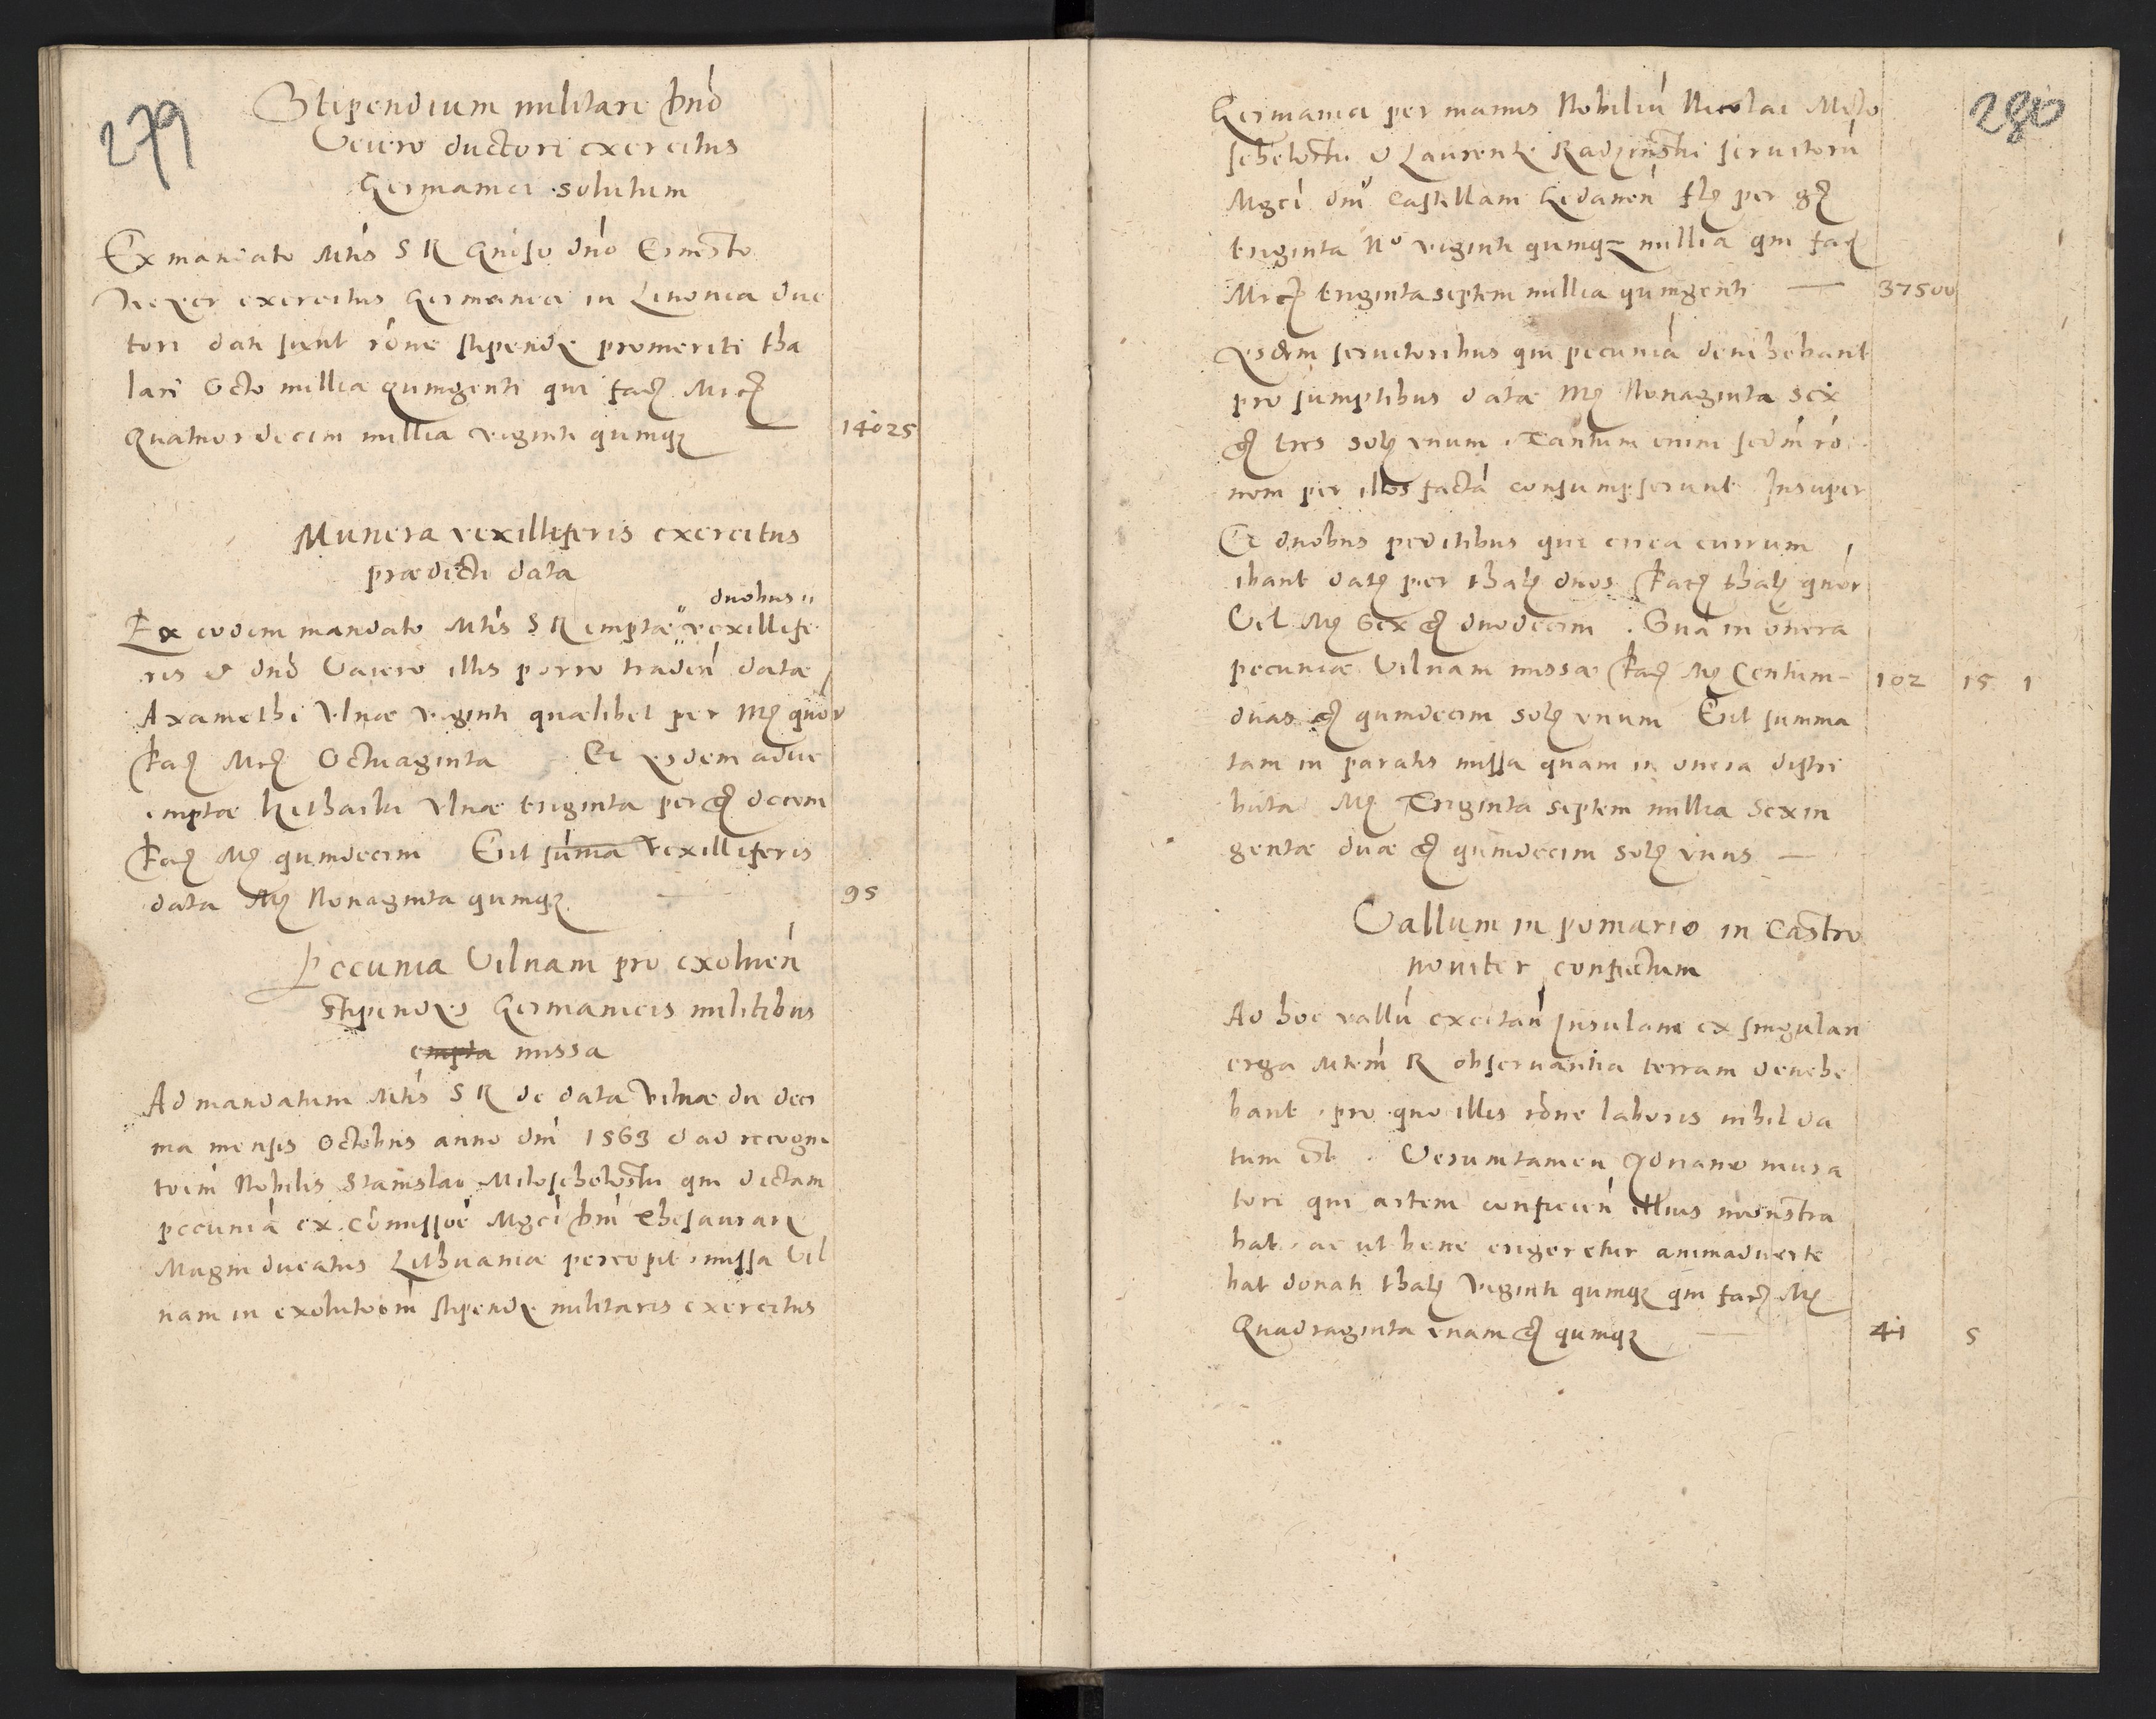 279
Stipendium militare dnō
Veiero ductori exercitus
Germanici solutum
Ex mandato Mtis S R Gnōso dnō Ernesto
Veyer exercitus Germanici in Livonia duc
tori dati sunt rōne stipendy promeriti tha
lari Octo millia quingenti qui faciȝ Mrcȝ
Quatuordecim millia viginti quinqȝ — 14025
Munera vexilliferis exercitus
prædicti data
duobus
Ex eodem mandato Mtis S R emptæ vexillife
ris et dnō Vaiero illis porro tradeń datæ
Axamethi Ulnæ viginti quælibet per Mȝ quor
faciȝ Mrȝ Octuaginta Et ysdem adiu
emptæ Kithaiki Ulnæ triginta per gȝ decem
faciȝ Mȝ quindecim Erit suma vexilliferis
data Mȝ Nonaginta quinqȝ — 95
Pecunia Vilnam pro exolueń
stipendys Germanicis militibus
empta missa
Ad mandatum Mtis S R de data Vilnæ die deci
ma mensis Octobris anno dni 1563 et ad recogni
toēm Nobilis Stanislai Miloschelostki qui dictam
pecuniā ex cōmissoē Mgci dni thesaurary
Magni ducatus Lithuaniæ percepit missa Vil
nam in exolutoēm stipendy militaris exercitus
280
Germanici per manus Nobiliū Nicolai Milo
schelostki et Laurenty Radzinski servitorū
Mgci dni Castellani Gedanēn flȝ per gȝ
triginta No viginti quinqȝ millia qui faciȝ
Mrcȝ triginta septem millia quingenti — 37500
ysdem servitoribus qui pecuniā devehebant
pro sumptibus datæ Mȝ Nonaginta sex
gȝ tres solȝ unum. Tantum enim secdm rō
nem per illos factā consumpserunt Insuper
Et duobus peditibus qui circa currum
ibant datȝ per thalȝ duos faciȝ thalȝ quōr
Vel Mȝ Sex gȝ duodecim. Suā in onera
pecuniæ Vilnam missæ faciȝ Mȝ Centum- 102 15 1
duas gȝ quindecim solȝ unum Erit summa
tam in paratis missa quam in onera distri
buta Mȝ Triginta septem millia Sexin
gentæ duæ gȝ quindecim solȝ unus —
Vallum in pomario in Castro
noviter confectum
Ad hoc vallū excitań Insulani ex singulari
erga Mtem R observantia terram devehe
bant. pro quo illis rōne laboris nihil da
tum est. Verumtamen Adriano mura
tori qui artem conficień illius monstra
bat. ac ut bene erigeretur animadverte
bat donati thalȝ Viginti quinqȝ qui faciȝ Mȝ
Quadraginta unam gȝ quinqȝ — 41 5